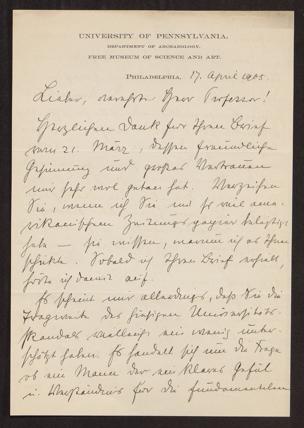 UNIVERSITY OF PENNSYLVANIA.
DEPARTMENT OF ARCHAEOLOGY.
FREE MUSEUM OF SCIENCE AND ART.
PHILADELPHIA, 17. April 1905.
Lieber, verehrter Herr Professor!
Herzlichen Dank für Ihren Brief
vom 21. März, dessen freundliche
Gesinnung und großes Vertrauen
mir sehr wohl getan hat. Verzeihen
Sie, wenn ich Sie mit so viel ame-
rikanischem Zeitungspapier belästigt
habe — Sie wissen, warum ich es Ihnen
schickte. Sobald ich Ihren Brief erhielt,
hörte ich damit auf.
Es scheint mir allerdings, daß Sie die
Tragweite des hiesigen Universitäts-
skandals vielleicht ein wenig unter-
schätzt haben. Es handelt sich um die Frage
ob ein Mann der ein klares Gefühl
u. Verständnis für die fundamentalen